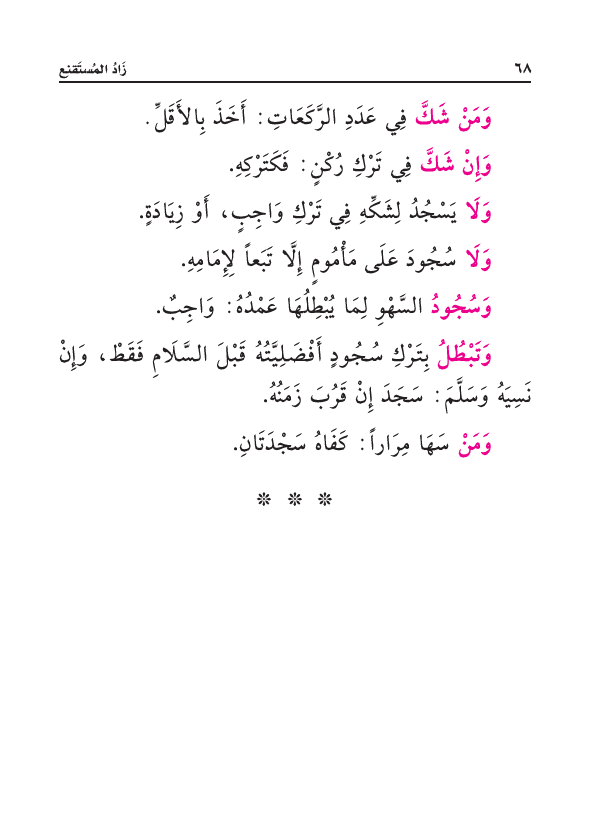 ٦٨
زَادُ المُستَقنِع
وَمَنْ شَكَّ فِي عَدَدِ الرَّكَعَاتِ: أَخَذَ بِالأَقَلِّ.
وَإِنْ شَكَّ فِي تَرْكِ رُكْنٍ: فَكَتَرْكِهِ.
وَلَا يَسْجُدُ لِشَكِّهِ فِي تَرْكِ وَاجِبٍ، أَوْ زِيَادَةٍ.
وَلَا سُجُودَ عَلَى مَأْمُومٍ إِلَّا تَبَعاً لِإِمَامِهِ.
وَسُجُودُ السَّهْوِ لِمَا يُبْطِلُهَا عَمْدُهُ: وَاجِبٌ.
وَتَبْطُلُ بِتَرْكِ سُجُودٍ أَفْضَلِيَّتُهُ قَبْلَ السَّلَامِ فَقَطْ، وَإِنْ
نَسِيَهُ وَسَلَّمَ: سَجَدَ إِنْ قَرُبَ زَمَنُهُ.
وَمَنْ سَهَا مِرَاراً: كَفَاهُ سَجْدَتَانِ.